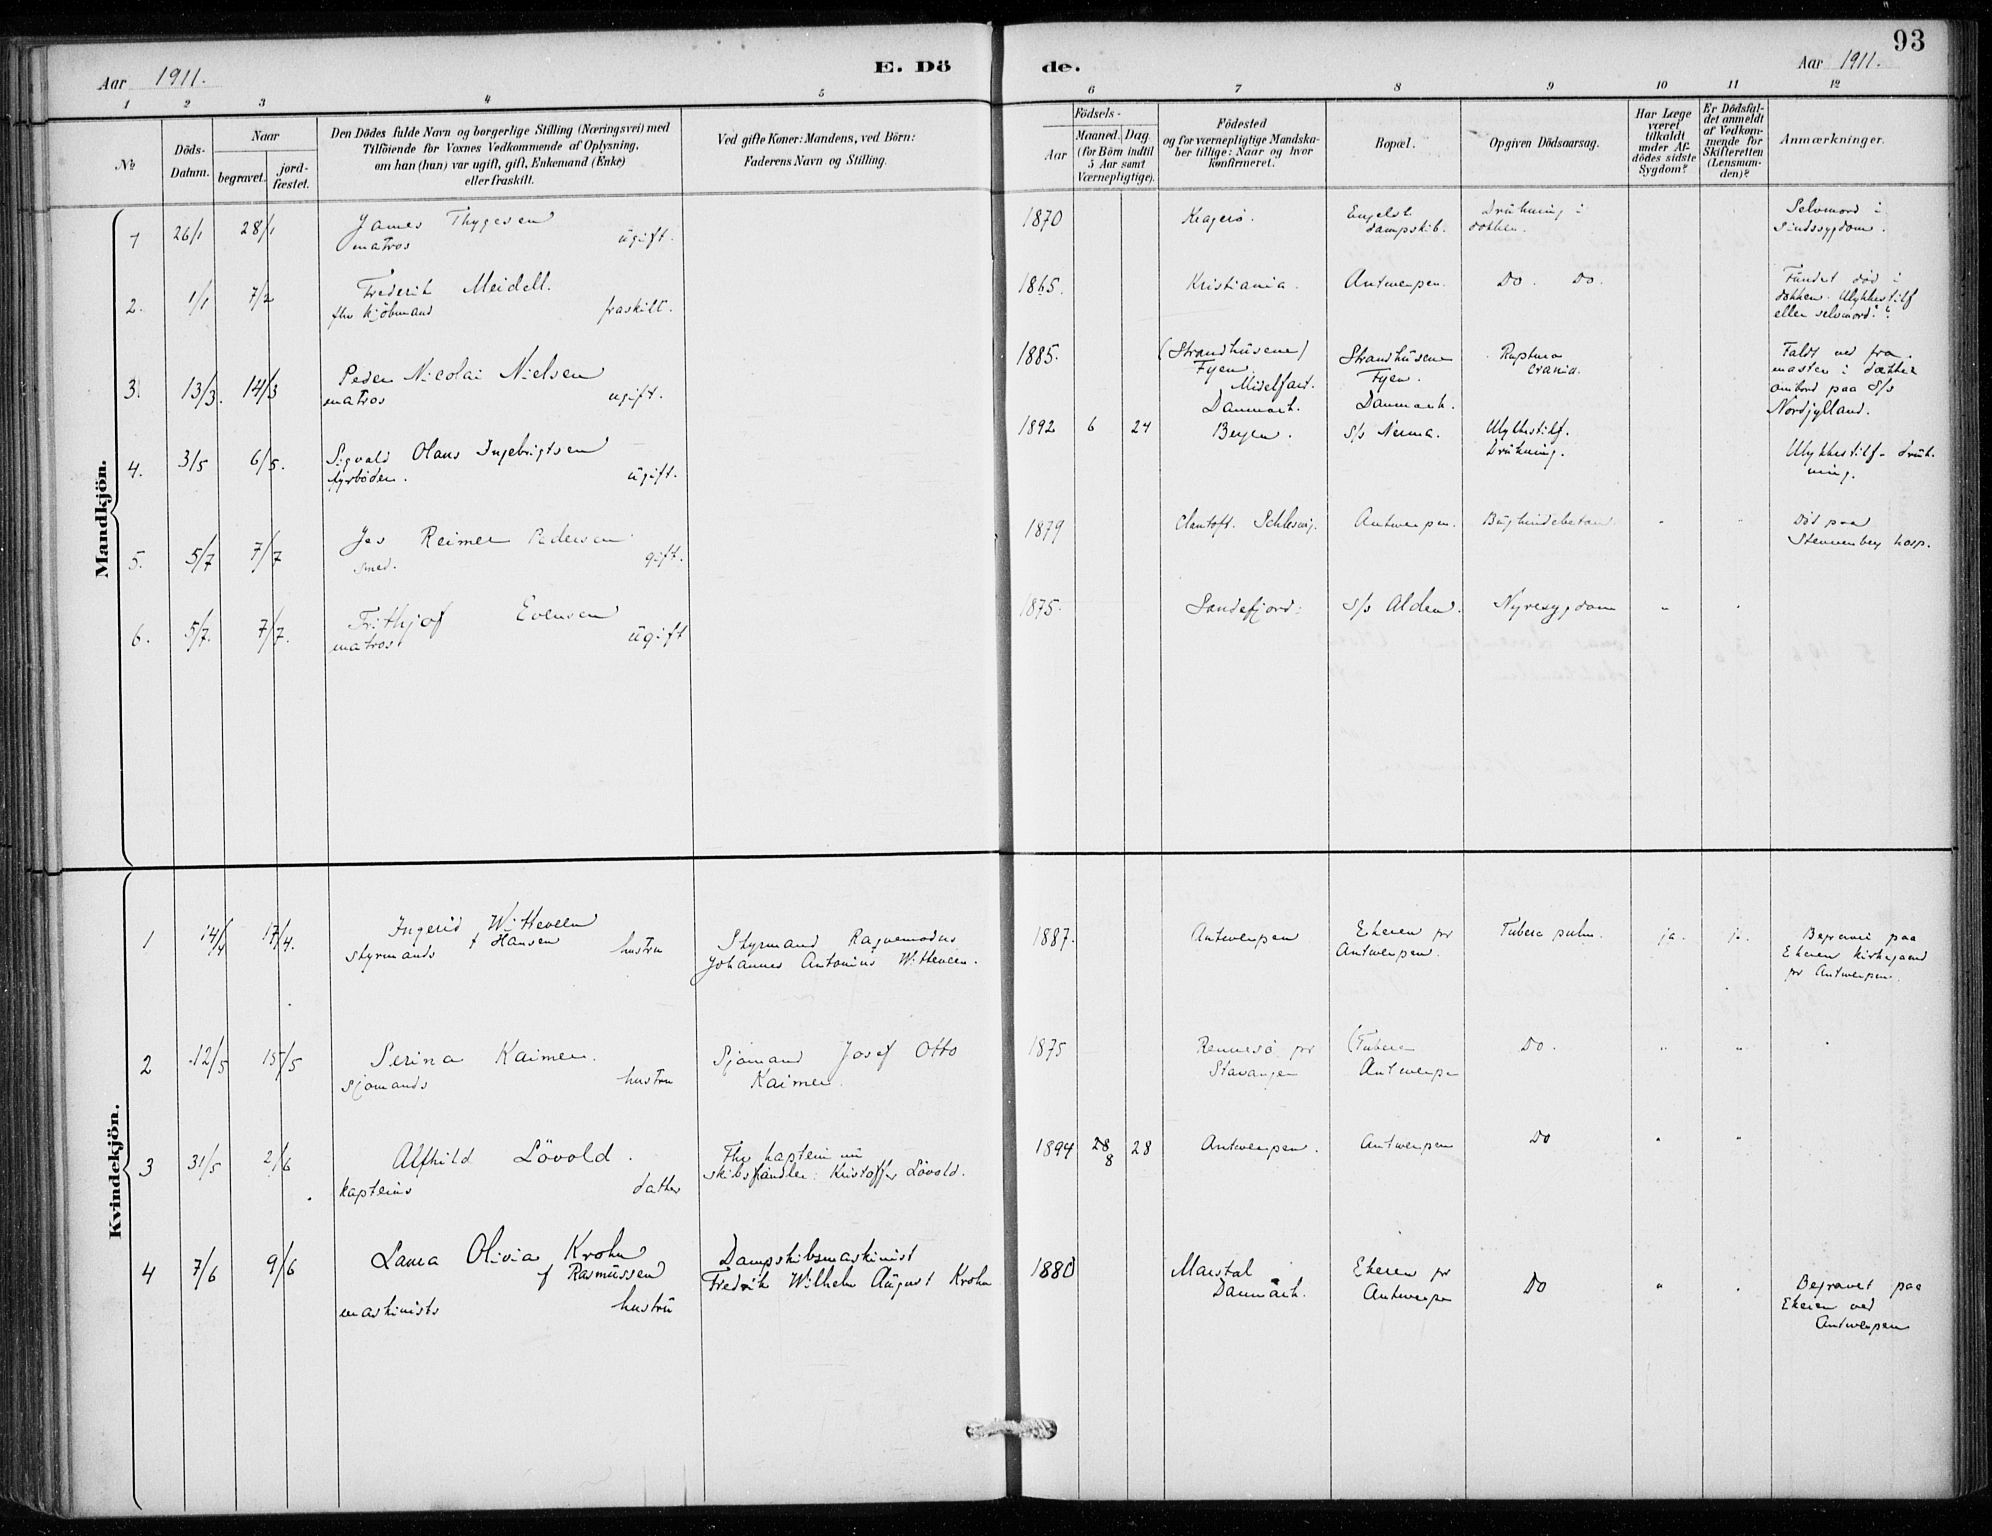 93
Aar 1911.
E. Dö
de.
Aar 1911.
1 2 3 4 5 6 7 8 9 10 11 12
No
Döds-
Datum.
Naar
begravet.
jord-
fæstet.
Den Dödes fulde Navn og borgerlige Stilling (Næringsvei) med
Tilföiende for Voxnes Vedkommende af Oplysning,
om han (hun) var ugift, gift, Enkemand (Enke)
eller fraskilt.
Ved gifte Koner: Mandens, ved Börn:
Faderens Navn og Stilling.
Födsels-
Aar
Maaned. Dag.
(for Börn indtil
5 Aar samt
Værnepligtige).
Födested
og for værnepligtige Mandska-
ber tillige: Naar og hvor
konfirmeret.
Bopæl.
Opgiven Dödsaarsag.
Har Læge
været
tilkaldt
under Af-
dödes sidste
Sygdom?
Er Dödsfal-
det anmeldt
af Vedkom-
mende for
Skifteretten
(Lensman-
den)?
Anmærkninger.
Mandkjön.
1 26/1 28/1 James Thygesen
matros ugift.
1870 Kragerö. Engelsk
dampskib.
Drukning i
dokken.
Selvmord i
Sindssygdom.
2. 1/1 7/2 Frederik Meidell.
fhv kjöbmand fraskilt.
1865. Kristiania. Antwerpen. Do. Do.
Fundet död i
dokken. Ulykkestilf
eller selvmord?
3. 13/3. 14/3 Peder Nicolai Nielsen
matros ugift.
1885. (Strandhusene)
Fyen
Middelfart.
Danmark.
Strandhusene
Fyen.
Danmark.
Ruptura
crania.
Faldt ned fra
masten i dækket
ombord paa S/s
Nordjylland.
4. 3/5 6/5. Sigvald Olaus Ingebrigtsen
fyrböder. ugift.
1892 6 24 Bergen. S/s Nerma. Ulykkestilf.
Drukning.
Ulykkestilf. druk-
ning.
5. 5/7 7/7 Jes Reimer Pedersen
smed. gift.
1879 Clantoft. Schleswig. Antwerpen. " "
Död paa
Stuivenberg hosp.
6. 5/7. 7/7. Frithjof Evensen
matros ugift
1875. Sandefjord. S/s Alden. Nyresygdom " "
Kvindekjön.
1 14/4 17/4. Ingerid Witteveen
f Hansen
styrmands hustru
Styrmand
Johannes Antonius Witteveen.
1887. Antwerpen Ekeren pr
Antwerpen.
Tuberc pulm. ja. ja.
Begravet paa
Ekeren kirkegaard
pr Antwerpen.
2 12/5 15/5 Serina Kaimer.
sjömands hustru
Sjömand Josef Otto
Kaimer.
1875 Rennesö pr
Stavanger
Antwerpen
Do. " "
3 31/5 2/6 Alfhild Lövold.
kapteins datter
Fhv kaptein nu
skibshandler: Kristoffer Lövold.
1894 8 28 Antwerpen. Antwerpen Do " "
4 7/6 9/6 Laura Olivia Krohn
f Rasmussen
maskinists hustru
Dampskibsmaskinist
Fredrik Wilhelm August Krohn
1880 Marstal
Danmark.
Ekeren pr
Antwerpen
Do " "
Begravet paa
Ekeren ved
Antwerpen